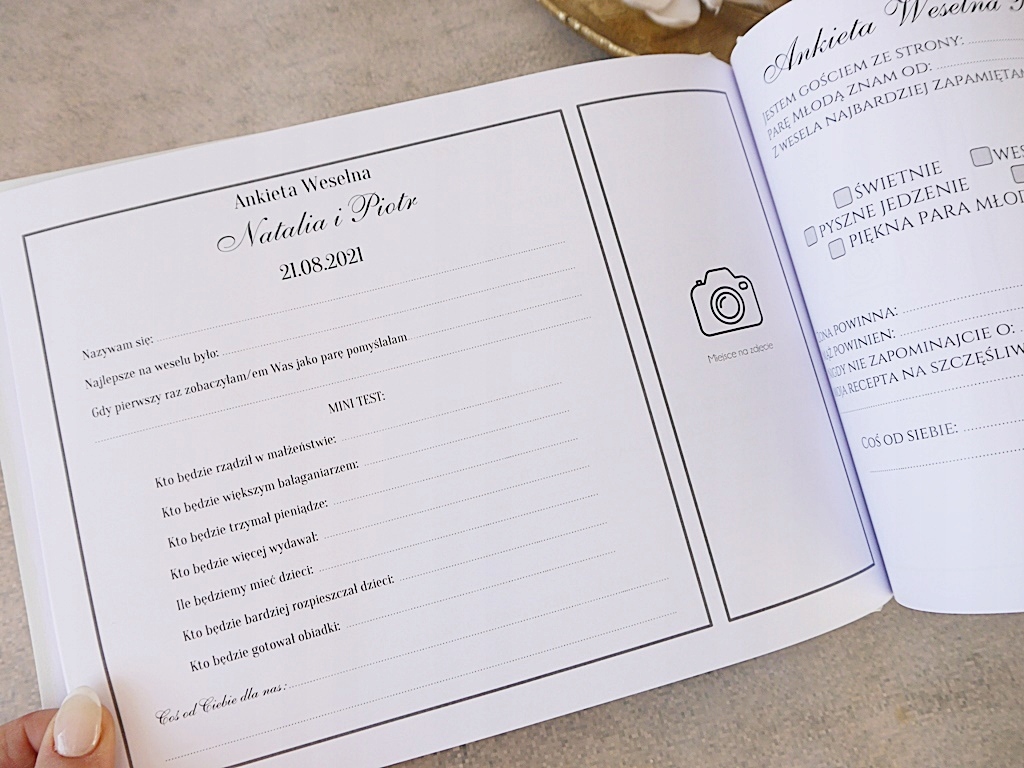 Ankieta Weselna
Natalia i Piotr
21.08.2021
Nazywam się:
Najlepsze na weselu było:
Gdy pierwszy raz zobaczyłam/em Was jako parę pomyślałam
MINI TEST:
Kto będzie rządził w małżeństwie:
Kto będzie większym bałaganiarzem:
Kto będzie trzymał pieniądze:
Kto będzie więcej wydawał:
Ile będziemy mieć dzieci:
Kto będzie bardziej rozpieszczał dzieci:
Kto będzie gotował obiadki:
Coś od Ciebie dla nas:
Miejsce na zdjęcie
Ankieta Weselna
JESTEM GOŚCIEM ZE STRONY:
PARĘ MŁODĄ ZNAM OD:
Z WESELA NAJBARDZIEJ
ŚWIETNIE
PYSZNE JEDZENIE
PIĘKNA PARA
POWINNA:
POWINIEN:
NIE ZAPOMINAJCIE O:
RECEPTA NA
COŚ OD SIEBIE: